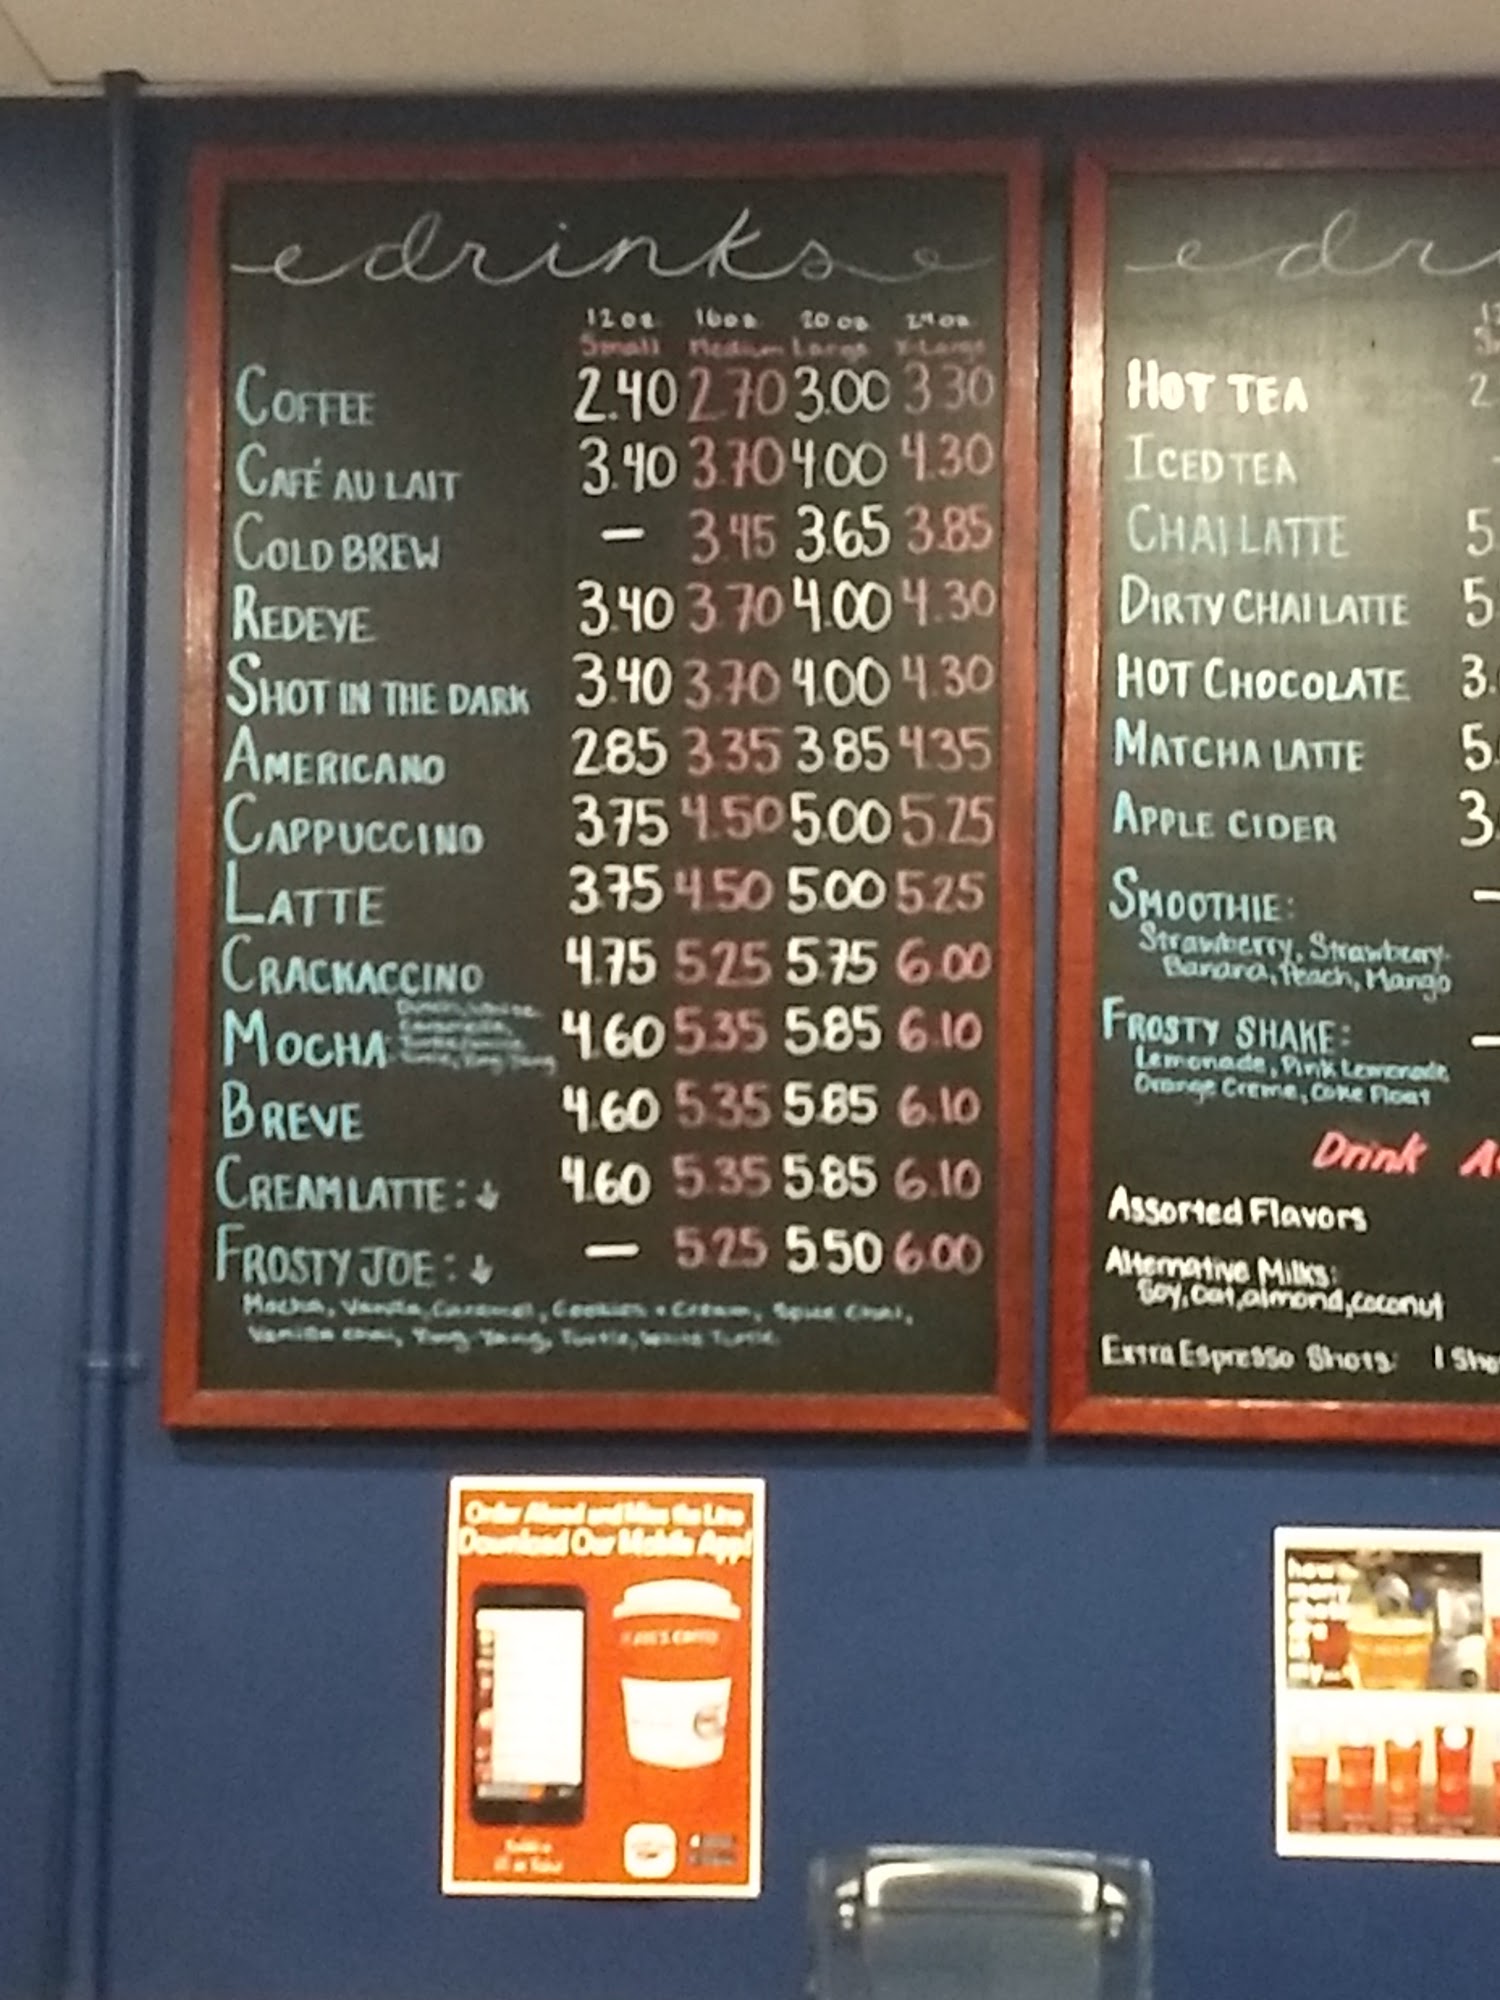 drinks
12 oz. 16 oz. 20 oz. 24 oz.
Small Medium Large X-Large
COFFEE 2.40 2.70 3.00 3.30
CAFÉ AU LAIT 3.40 3.70 4.00 4.30
COLD BREW — 3.45 3.65 3.85
REDEYE 3.40 3.70 4.00 4.30
SHOT IN THE DARK 3.40 3.70 4.00 4.30
AMERICANO 2.85 3.35 3.85 4.35
CAPPUCCINO 3.75 4.50 5.00 5.25
LATTE 3.75 4.50 5.00 5.25
CRACKACCINO 4.75 5.25 5.75 6.00
MOCHA 4.60 5.35 5.85 6.10
BREVE 4.60 5.35 5.85 6.10
CREAM LATTE: ↓ 4.60 5.35 5.85 6.10
FROSTY JOE: ↓ — 5.25 5.50 6.00
Mocha, Vanilla, Caramel, Cookies + Cream, Spice Chai,
Vanilla Chai, Ying Yang, Turtle, White Turtle
HOT TEA 2
ICED TEA
CHAI LATTE 5.
DIRTY CHAI LATTE 5
HOT CHOCOLATE 3.
MATCHA LATTE 5.
APPLE CIDER 3.
SMOOTHIE: —
Strawberry, Strawberry-
Banana, Peach, Mango
FROSTY SHAKE: —
Lemonade, Pink Lemonade
Orange Creme, Coke Float
Drink
Assorted Flavors
Alternative Milks:
Soy, Oat, almond, coconut
Extra Espresso Shots: 1
Order Ahead and Miss the Line
Download Our Mobile App!
how
many